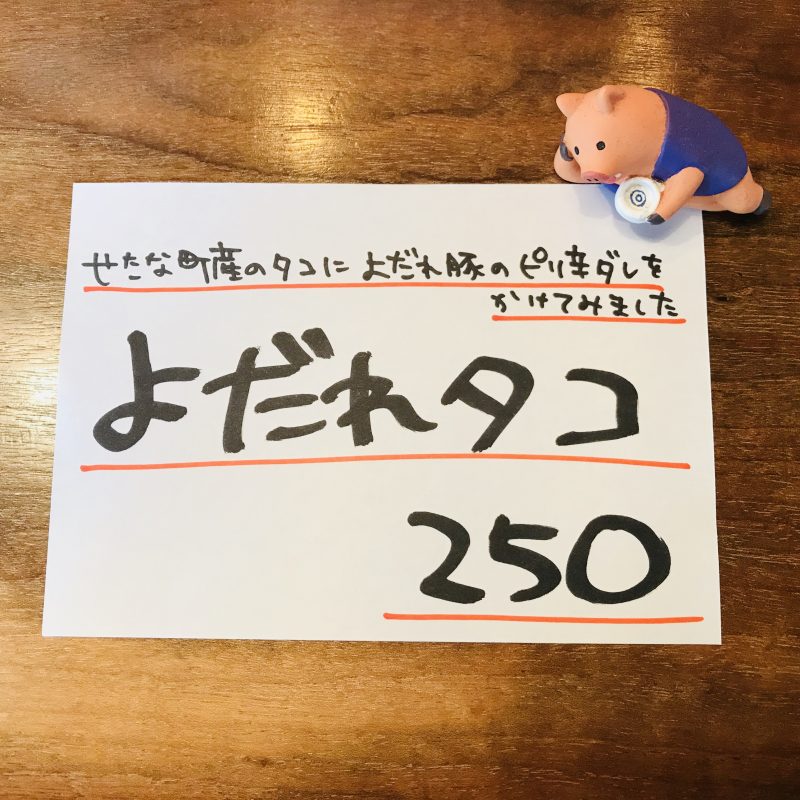 せたな町産のタコに よだれ豚のピリ辛ダレを
かけてみました
よだれタコ
250